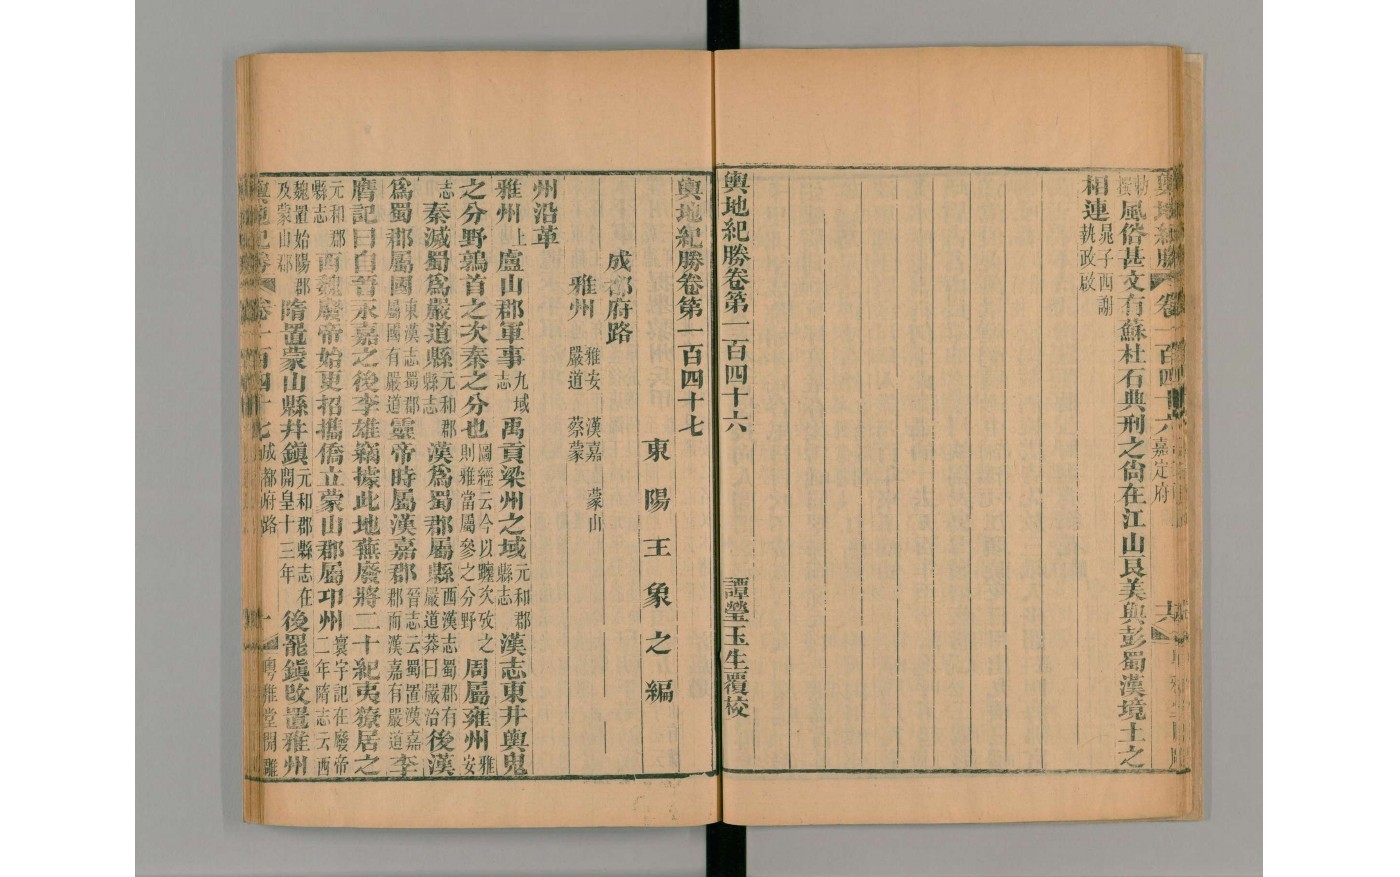 輿地紀勝 卷一百四十六 嘉定府
風俗甚文有蘇杜石典刑之尙在江山艮美與彭蜀漢境土之
相連晁子西謝執政啟
輿地紀勝卷第一百四十六 譚瑩玉生覆校
輿地紀勝卷第一百四十七
東陽王象之編
成都府路
雅州 雅安 漢嘉 蒙山 嚴道 蔡蒙
州沿革
雅州上盧山郡軍事九域志禹貢梁州之域元和郡縣志漢志東井輿鬼
之分野鶉首之次秦之分也圖經云今以躔次攷之則雅當屬參之分野周屬雍州雅安
志秦滅蜀爲嚴道縣元和郡縣志漢爲蜀郡屬縣西漢志蜀郡有嚴道莽曰嚴治後漢
爲蜀郡屬國東漢志蜀郡屬國有嚴道靈帝時屬漢嘉郡晉志云蜀置漢嘉郡而漢嘉有嚴道李
膺記曰自晉永嘉之後李雄竊據此地蕪廢將二十紀夷獠居之
元和郡縣志西魏廢帝始更招攜僑立蒙山郡屬邛州寰宇記在廢帝二年隋志云西
魏置始陽郡及蒙山郡隋置蒙山縣幷鎮元和郡縣志在開皇十三年後罷鎮改置雅州
輿地紀勝 卷一百四十七 成都府路 一 粤雅堂開雕